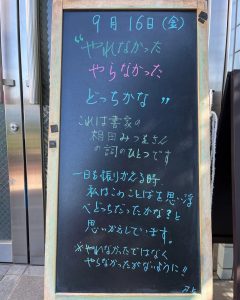 9月16日(金)
“やれなかった
やらなかった
どっちかな”
これは書家の
相田みつをさん
の詞のひとつです
一日を振りかえる時
私はこのことばを思い浮
べどっちだったかな?と
思いかえしています。
※やれなかったではなく
やらなかったがないように!!